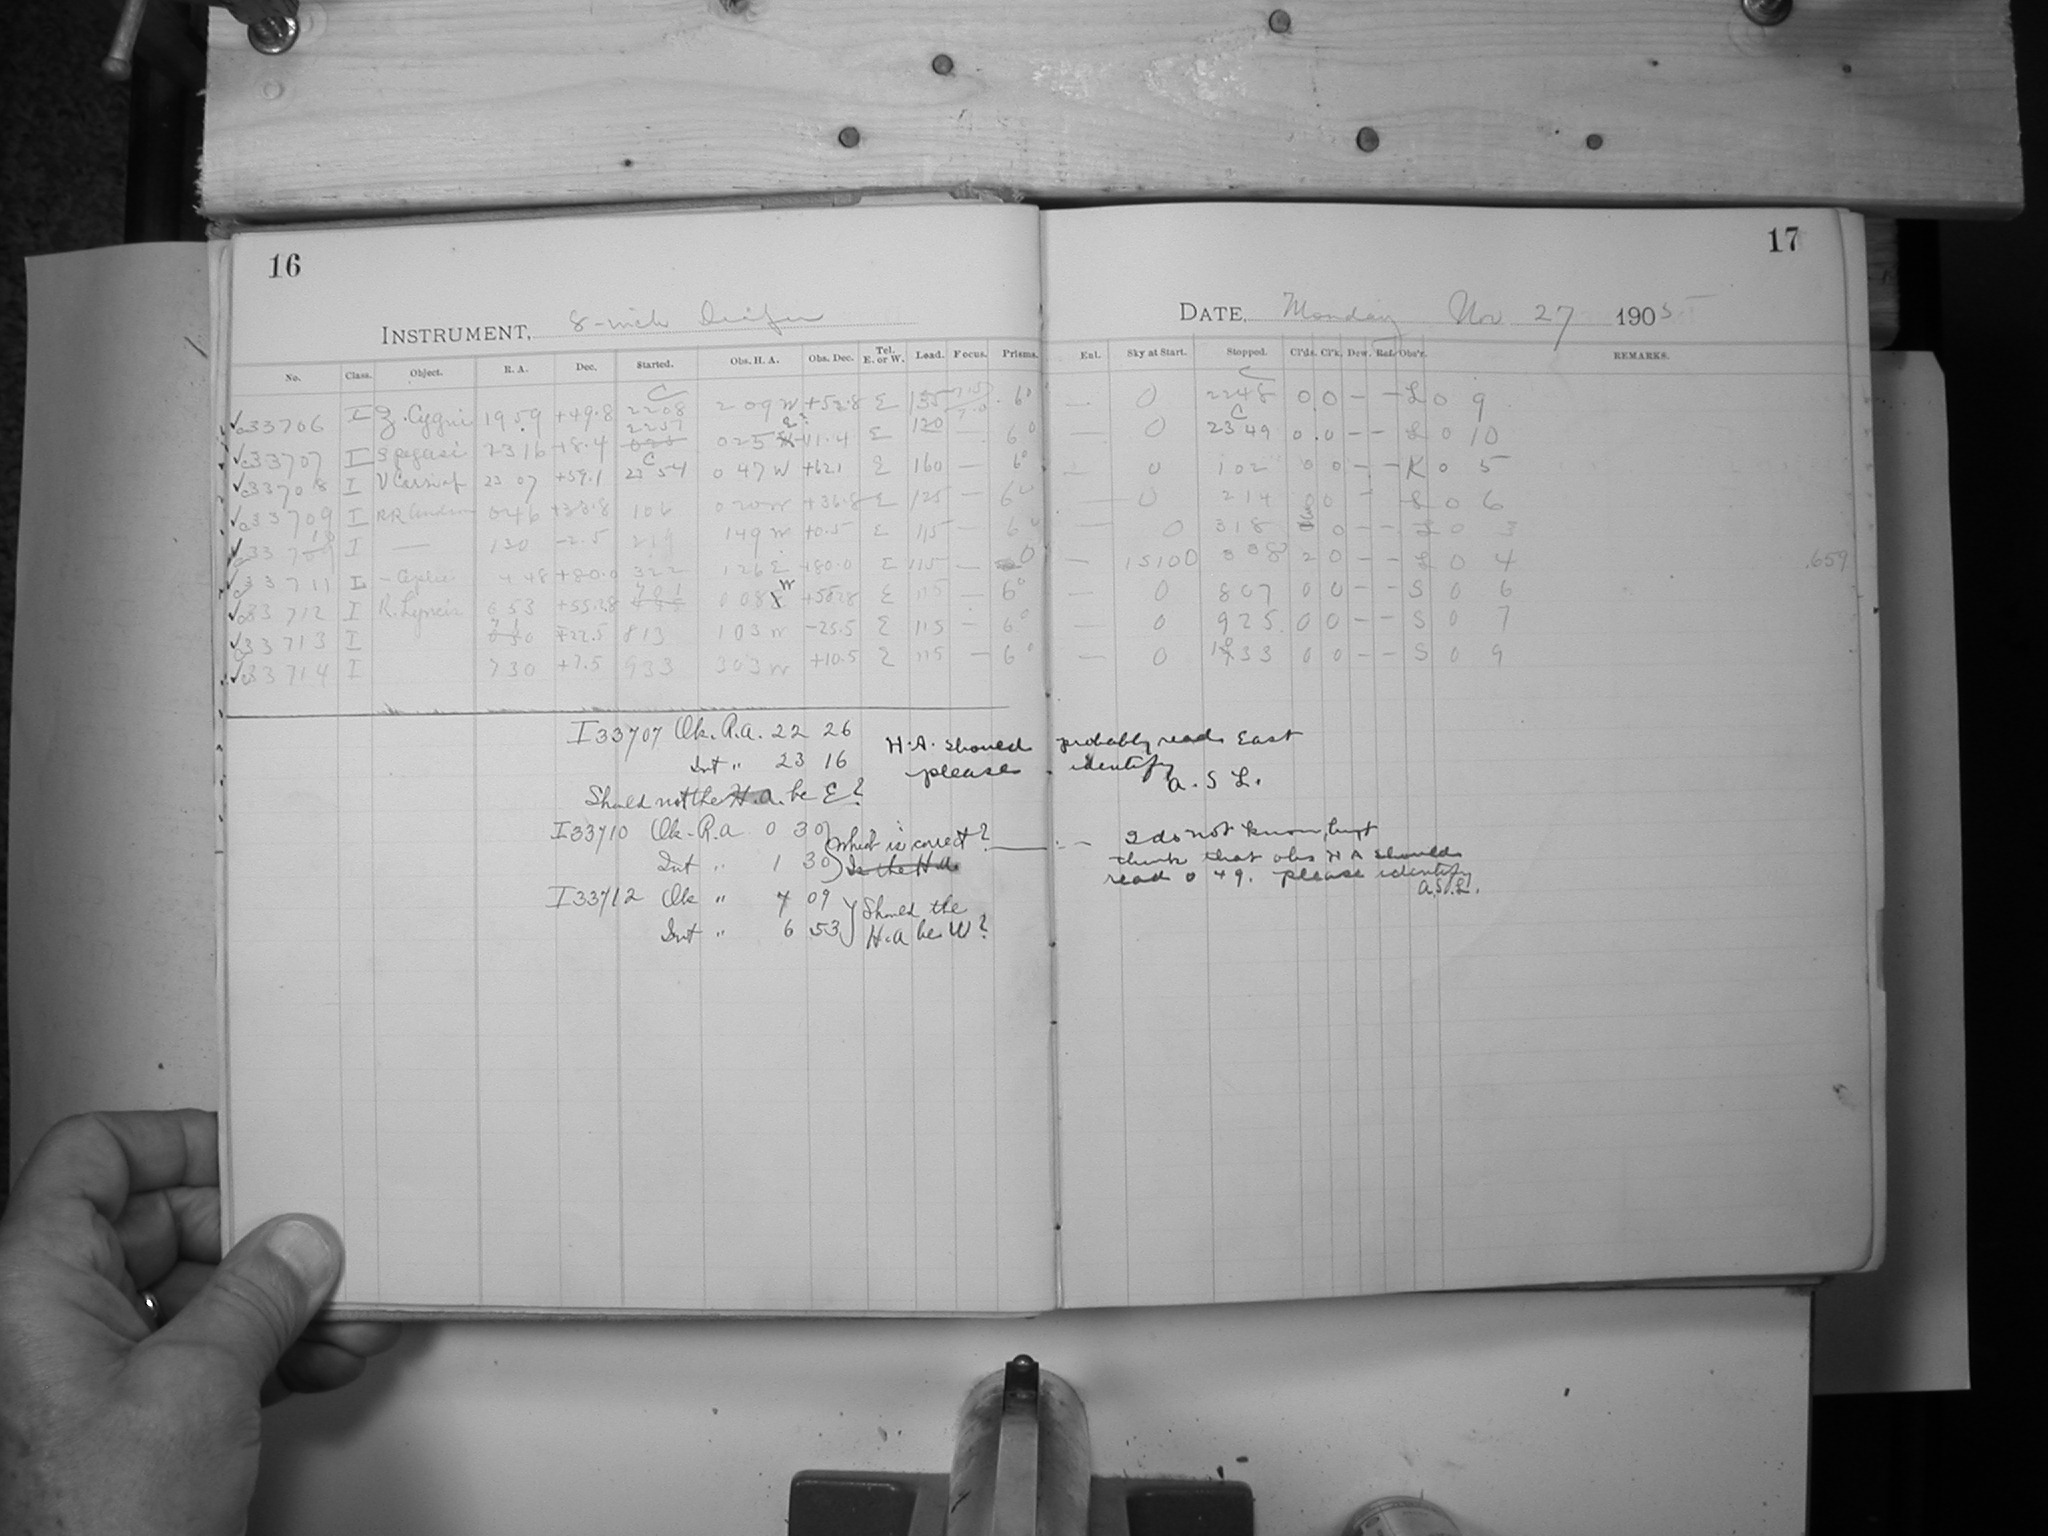 16
17
INSTRUMENT, 8-inch
DATE, Monday Nov 27 1905
No. Class. Object. R. A. Dec. Started. Obs. H. A. Obs. Dec. Tel. E. or W. Lead. Focus. Prisms. Enl. Sky at Start. Stopped. Cl'ds. Cl'k. Dew. Ref. Obs'r. REMARKS.
33706 I Z. Cygni 19 59 +49.8 2208 2 09 W +52.8 E 135 6° — 0 2248 0 0 - - L 0 9
33707 I S pegasi 2316 +8.4 2257 0 25 E? +11.4 E 120 — 6° — 0 2349 0 0 - - L 0 10
33708 I V Cassiop 23 07 +59.1 23 54 0 47 W +62.1 E 160 — 6° — 0 102 0 0 - - K 0 5
33709 I RR 046 +33.8 106 020 W +36.8 E 125 — 6° — 0 214 0 0 - L 0 6
33710 I — 130 -2.5 219 149 W +0.5 E 115 — 6° — 0 318 0 0 - - L 0 3
33711 I 4 48 +80.0 322 126 E +80.0 E 115 — 0 — 15100 2 0 - - L 0 4 .659
33712 I R. Lyncis 6 53 +55.28 701 0 08 W +58.28 E 115 — 6° — 0 807 0 0 - - S 0 6
33713 I 813 103 W -25.5 E 115 - 6° — 0 925 0 0 - - S 0 7
33714 I 730 +7.5 933 303 W +10.5 E 115 — 6° — 0 33 0 0 - - S 0 9
I33707 Ok. R.A. 22 26
Int " 23 16
Should not the H.A. be E?
H.A. should probably read East
please identify
A. S. L.
I33710 Ok. R.A 0 30
Int " 1 30
Which is correct?
Is the H.A.
I do not know, but
think that obs H A should
read 0 49. please identify
A.S.L.
I33712 Ok " 7 09
Int " 6 53
Should the
H.A be W?